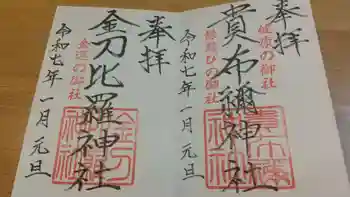 奉拝
健康の御社
貴布禰神社
縁結びの御社
令和七年一月元旦
奉拝
金刀比羅神社
金運の御社
令和七年一月元旦